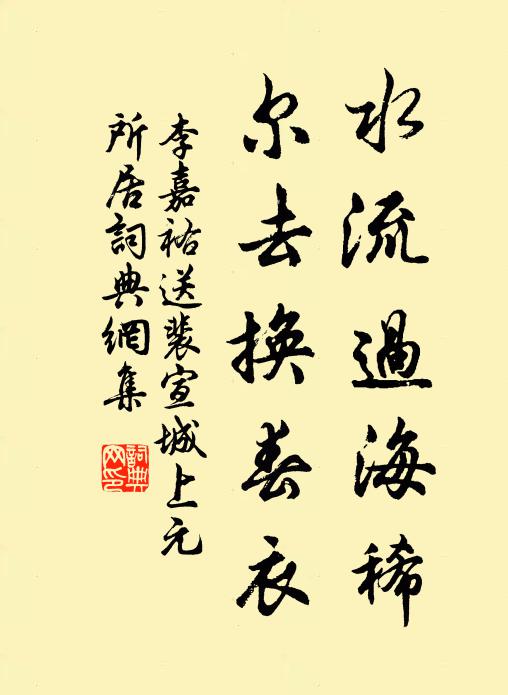 水流過海稀
尔去換春衣
李嘉祐送裴宣城上元
所居詞典網集
詞典
网印